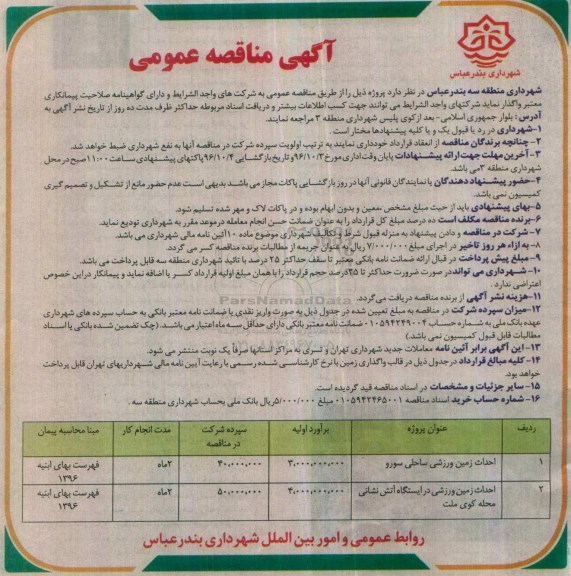 شهرداری بندرعباس
آگهی مناقصه عمومی
شهرداری منطقه سه بندرعباس در نظر دارد پروژه ذیل را از طریق مناقصه عمومی به شرکت های واجد الشرایط و دارای گواهینامه صلاحیت پیمانکاری
معتبر واگذار نماید شرکتهای واجد الشرایط می توانند جهت کسب اطلاعات بیشتر و دریافت اسناد مربوطه حداکثر ظرف مدت ده روز از تاریخ نشر آگهی به
آدرس : بلوار جمهوری اسلامی- بعد از کوی پلیس شهرداری منطقه ۳ مراجعه نمایند.
۱-شهرداری در رد یا قبول یک و یا کلیه پیشنهادها مختار است .
۲- چنانچه برندگان مناقصه از انعقاد قرارداد خودداری نمایند به ترتیب اولویت سپرده شرکت در مناقصه آنها به نفع شهرداری ضبط خواهد شد.
۳- آخرین مهلت جهت ارائه پیشنهادات پایان وقت اداری مورخ ۹۶/۱۰/۳ و تاریخ بازگشایی ۹۶/۱۰/۴ پاکتهای پیشنهادی ساعت ۱۱:۰۰ صبح در محل
شهرداری منطقه ۳می باشد.
۴-حضور پیشنهاد دهندگان یا نمایندگان قانونی آنها در روز بازگشایی پاکات مجاز می باشد بدیهی است عدم حضور مانع از تشکیل و تصمیم گیری
کمیسیون نمی باشد.
۵-بهای پیشنهادی باید از حیث مبلغ مشخص ،معین و بدون ابهام بوده و در پاکات لاک و مهر شده تسلیم شود.
۶-برنده مناقصه مکلف است ده درصد مبلغ کل قرارداد را به عنوان ضمانت حسن انجام معامله درموعد مقرر به شهرداری تودیع نماید.
۷-شرکت در مناقصه و دادن پیشنهاد به منزله قبول شرط و تکالیف شهرداری موضوع ماده ۱۰آئین نامه مالی شهرداری می باشد.
۸- به ازاء هر روز تاخیر در اجرای مبلغ ۷/۰۰۰/۰۰۰ ریال به عنوان جریمه از مطالبات برنده مناقصه کسر می گردد.
۹-مبلغ پیش پرداخت در قبال ارائه ضمانت نامه بانکی معتبر تا سقف حداکثر ۲۵ درصد با تائید شهرداری منطقه سه قابل پرداخت می باشد.
۱۰- شهرداری می تواند در صورت ضرورت حداکثر تا ۲۵درصد حجم قرارداد را با همان مبلغ اولیه قرارداد کسر یا اضافه نماید و پیمانکار در این خصوص
اعتراضی ندارد .
۱۱-هزینه نشر آگهی از برنده مناقصه دریافت می‌گردد.
۱۲-میزان سپرده شرکت در مناقصه به مبلغ تعیین شده در جدول ذیل به صورت واریز نقدی یا ضمانت نامه معتبر بانکی به حساب سپرده های شهرداری
عهده بانک ملی به شماره حساب ۰۱۰۵۹۴۲۴۹۰۰۴ ضمانت نامه معتبر بانکی دارای حداقل سه ماه اعتبار می باشد.(چک تضمین شده بانکی یا اسناد
مطالبات قابل قبول کمیسیون نمی باشد)
۱۳-این آگهی برابر آئین نامه معاملات جدید شهرداری تهران و تسری به مراکز استانها صرفاً یک نوبت منتشر می شود.
۱۴- کلیه مبالغ قرارداد در جدول ذیل در قالب واگذاری زمین با نرخ کارشناسی شده رسمی با رعایت آیین نامه مالی شهرداریهای تهران قابل پرداخت
خواهد بود.
۱۵- سایر جزئیات و مشخصات در اسناد مناقصه قید گردیده است.
۱۶- شماره حساب خرید اسناد مناقصه ۰۱۰۵۹۴۲۴۶۵۰۰۱ مبلغ ۵/۰۰۰/۰۰۰ریال بانک ملی بحساب شهرداری منطقه سه .
ParsNamadData
ردیف عنوان پروژه برآورد اولیه سپرده شرکت در مناقصه مدت انجام کار مبنا محاسبه پیمان
۱ احداث زمین ورزشی ساحلی سورو ۳،۰۰۰،۰۰۰،۰۰۰ ۴۰،۰۰۰،۰۰۰ ۲ماه فهرست بهای ابنیه ۱۳۹۶
۲ احداث زمین ورزشی در ایستگاه آتش نشانی محله کوی ملت ۴،۰۰۰،۰۰۰،۰۰۰ ۵۰،۰۰۰،۰۰۰ ۲ماه فهرست بهای ابنیه ۱۳۹۶
روابط عمومی و امور بین الملل شهرداری بندرعباس